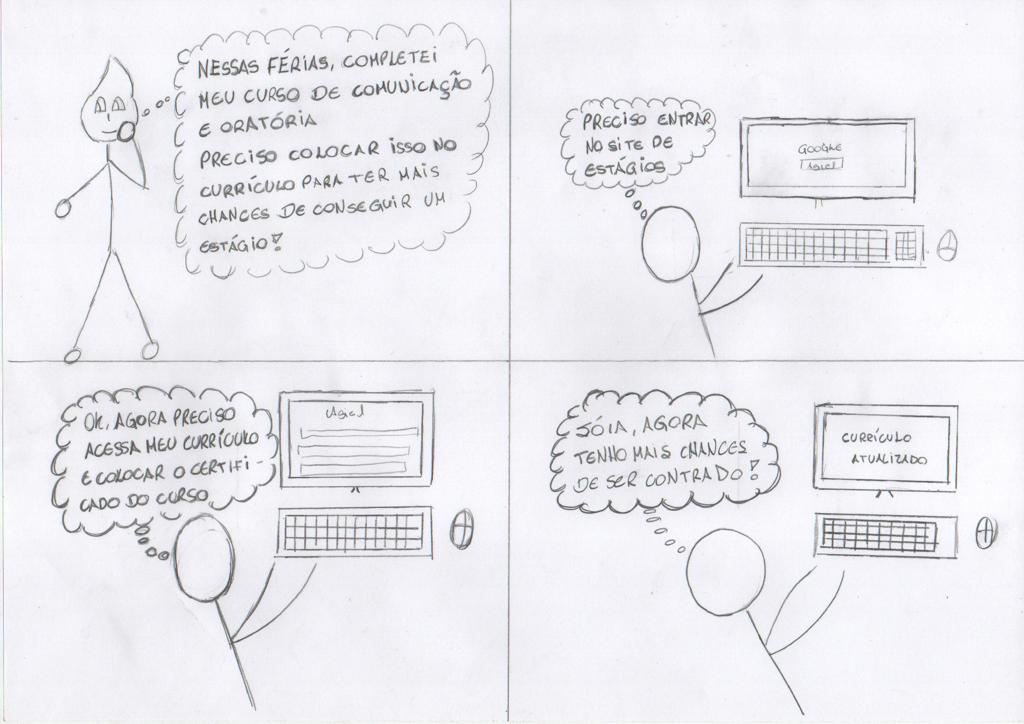 NESSAS FÉRIAS, COMPLETEI
MEU CURSO DE COMUNICAÇÃO
E ORATÓRIA
PRECISO COLOCAR ISSO NO
CURRÍCULO PARA TER MAIS
CHANCES DE CONSEGUIR UM
ESTÁGIO!
PRECISO ENTRAR
NO SITE DE
ESTÁGIOS
GOOGLE
Agiel
OK, AGORA PRECISO
ACESSA MEU CURRÍCULO
E COLOCAR O CERTIFI-
CADO DO CURSO
Agiel
JÓIA, AGORA
TENHO MAIS CHANCES
DE SER CONTRADO!
CURRÍCULO
ATUALIZADO